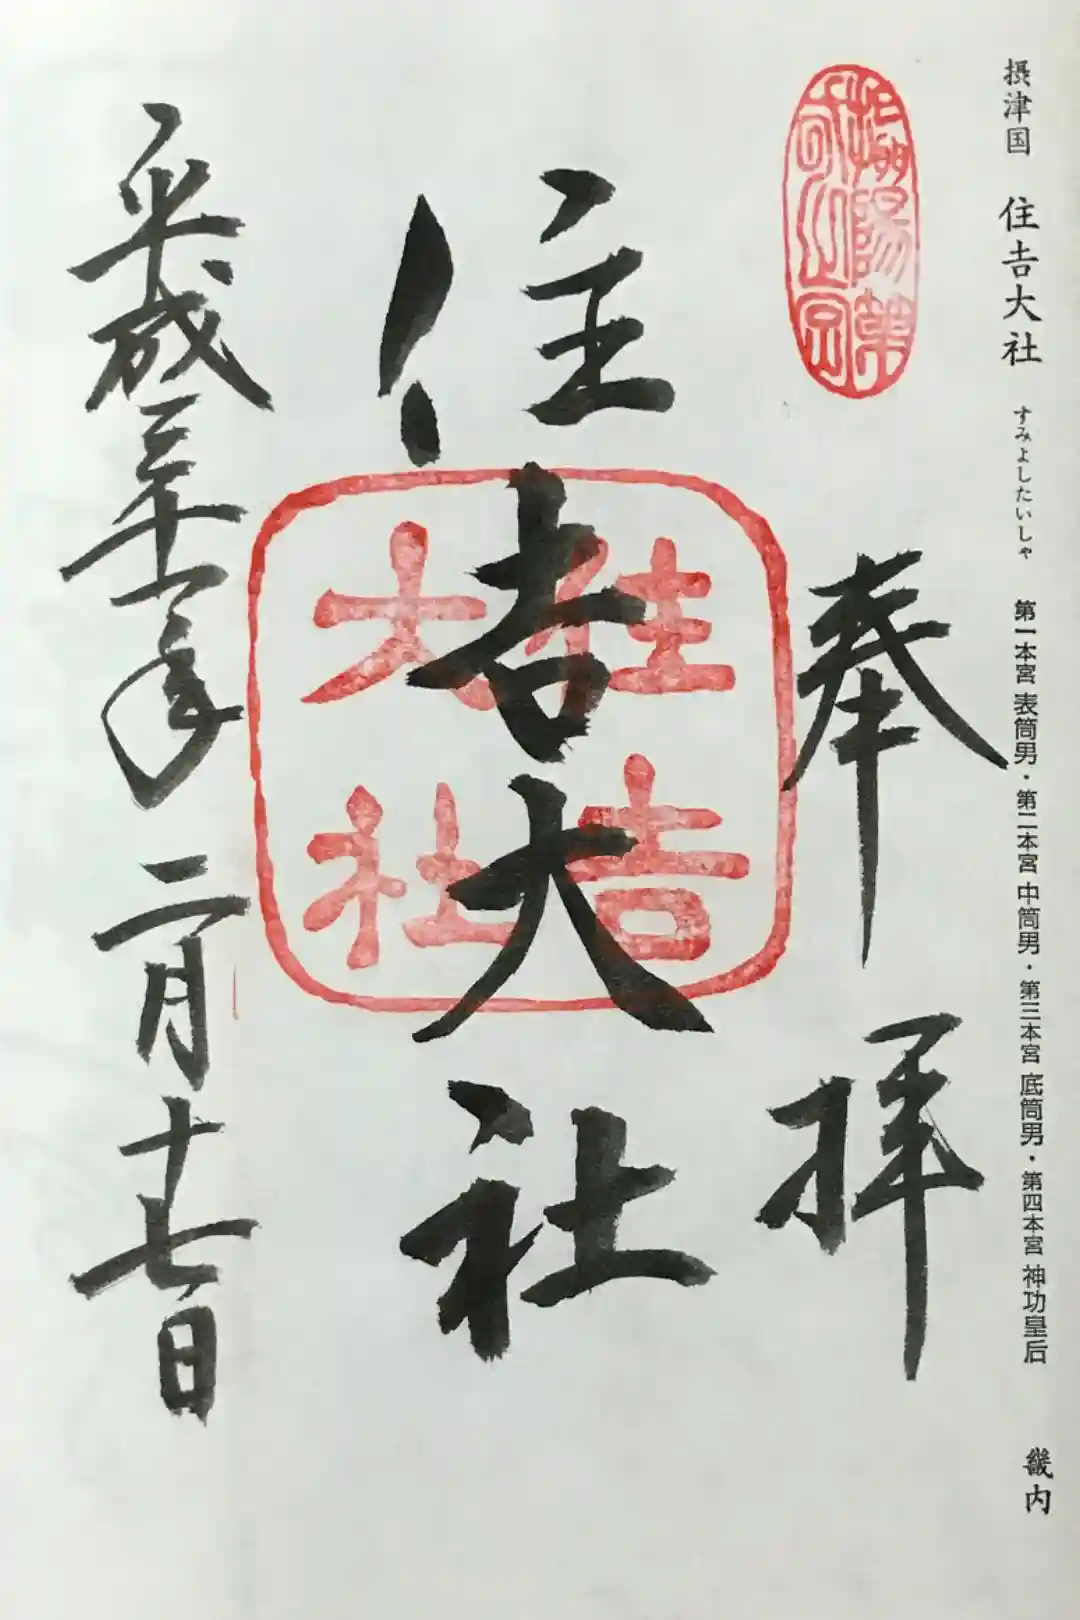 摂津国 住吉大社 すみよしたいしゃ 第一本宮 表筒男・第二本宮 中筒男・第三本宮 底筒男・第四本宮 神功皇后 畿内
奉拝
住吉大社
住吉
大社
平成三十一年二月十七日